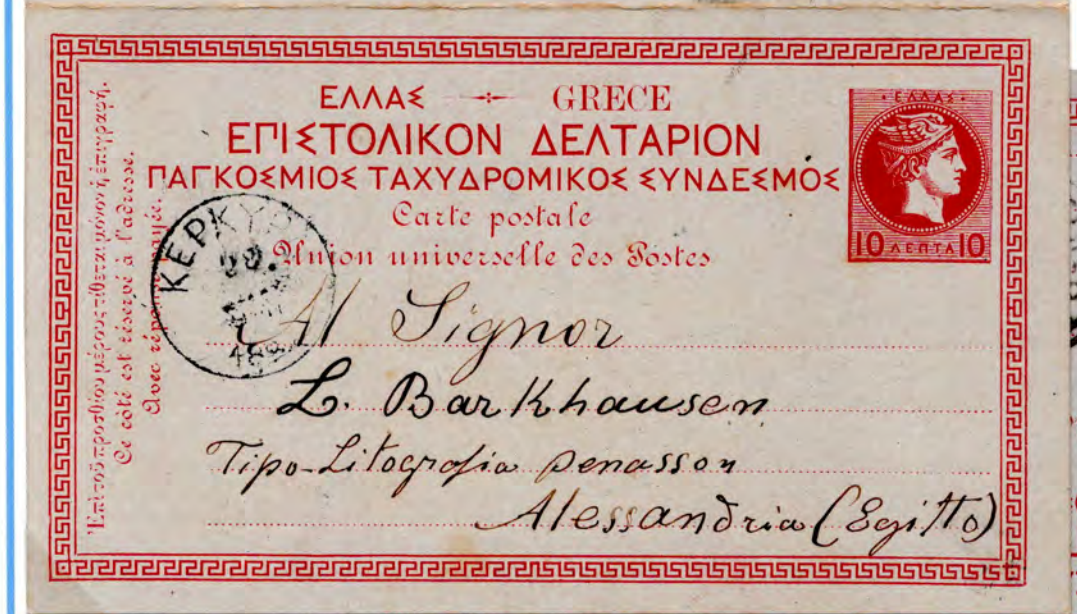 ΕΛΛΑΣ GRECE
ΕΠΙΣΤΟΛΙΚΟΝ ΔΕΛΤΑΡΙΟΝ
ΠΑΓΚΟΣΜΙΟΣ ΤΑΧΥΔΡΟΜΙΚΟΣ ΣΥΝΔΕΣΜΟΣ
Carte postale
Union universelle des Postes
·ΕΛΛΑΣ·
10 ΛΕΠΤΑ 10
Ἐπὶ τοῦ προσθίου μέρους τίθεται μόνον ἡ ἐπιγραφή.
Ce côté est réservé à l'adresse.
Avec réponse payée.
ΚΕΡΚΥΡΑ
Al Signor
L. Barkhausen
Tipo-Litografia Penasson
Alessandria (Egitto)